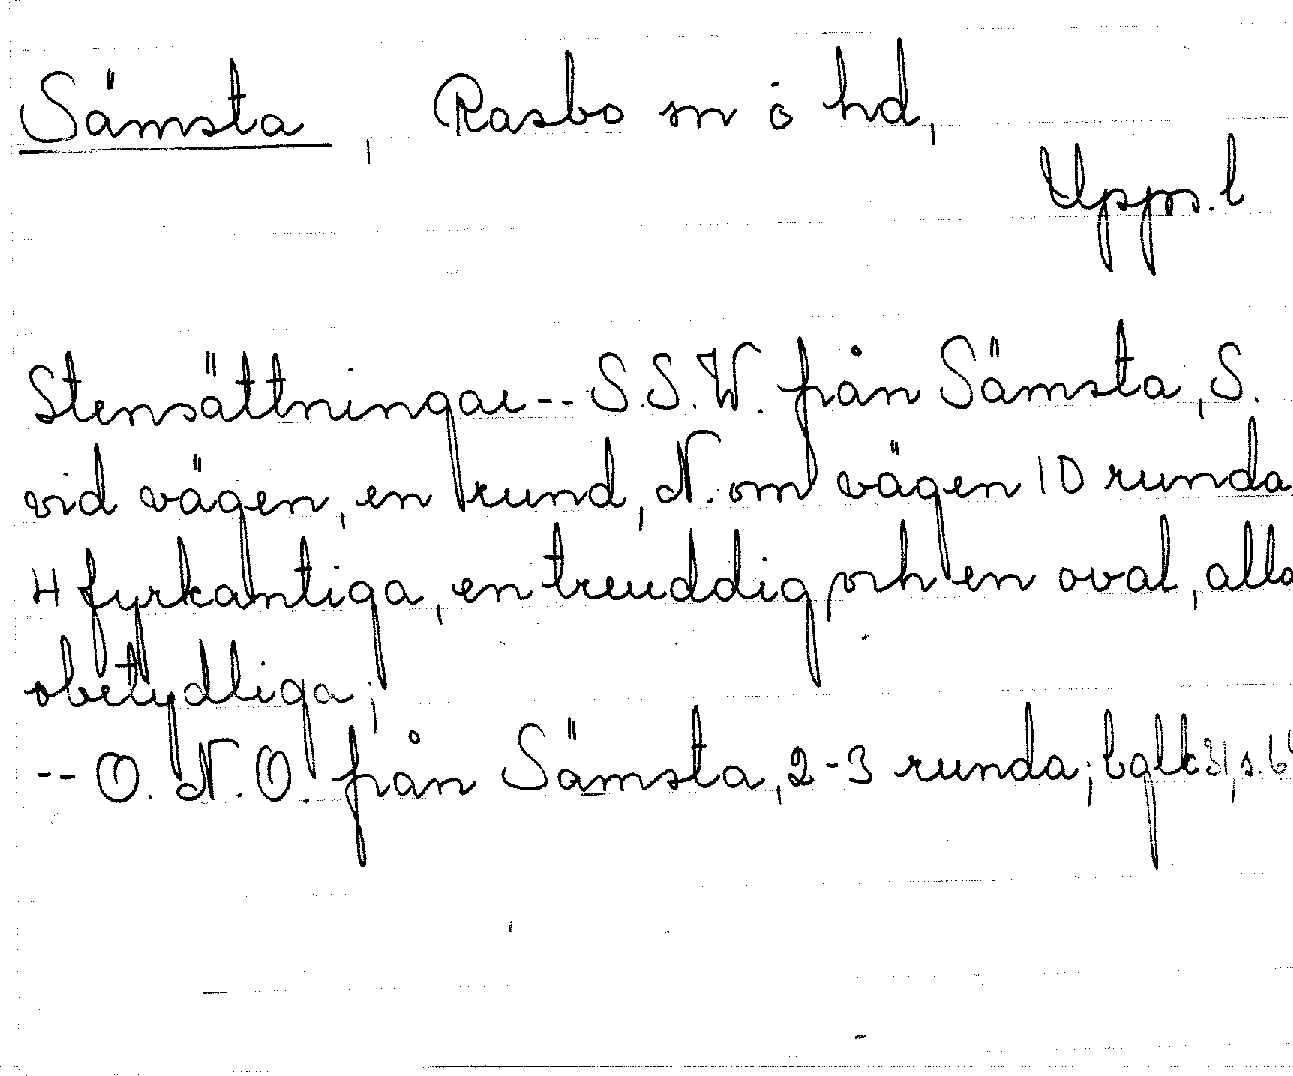 Sämsta, Rasbo sn o hd,
Upps. l
Stensättningar -- S.S.W. från Sämsta, S.
vid vägen, en rund, N. om vägen 10 runda
4 fyrkantiga, en treuddig och en oval, alla
obetydliga;
-- O.N.O. från Sämsta, 2-3 runda;